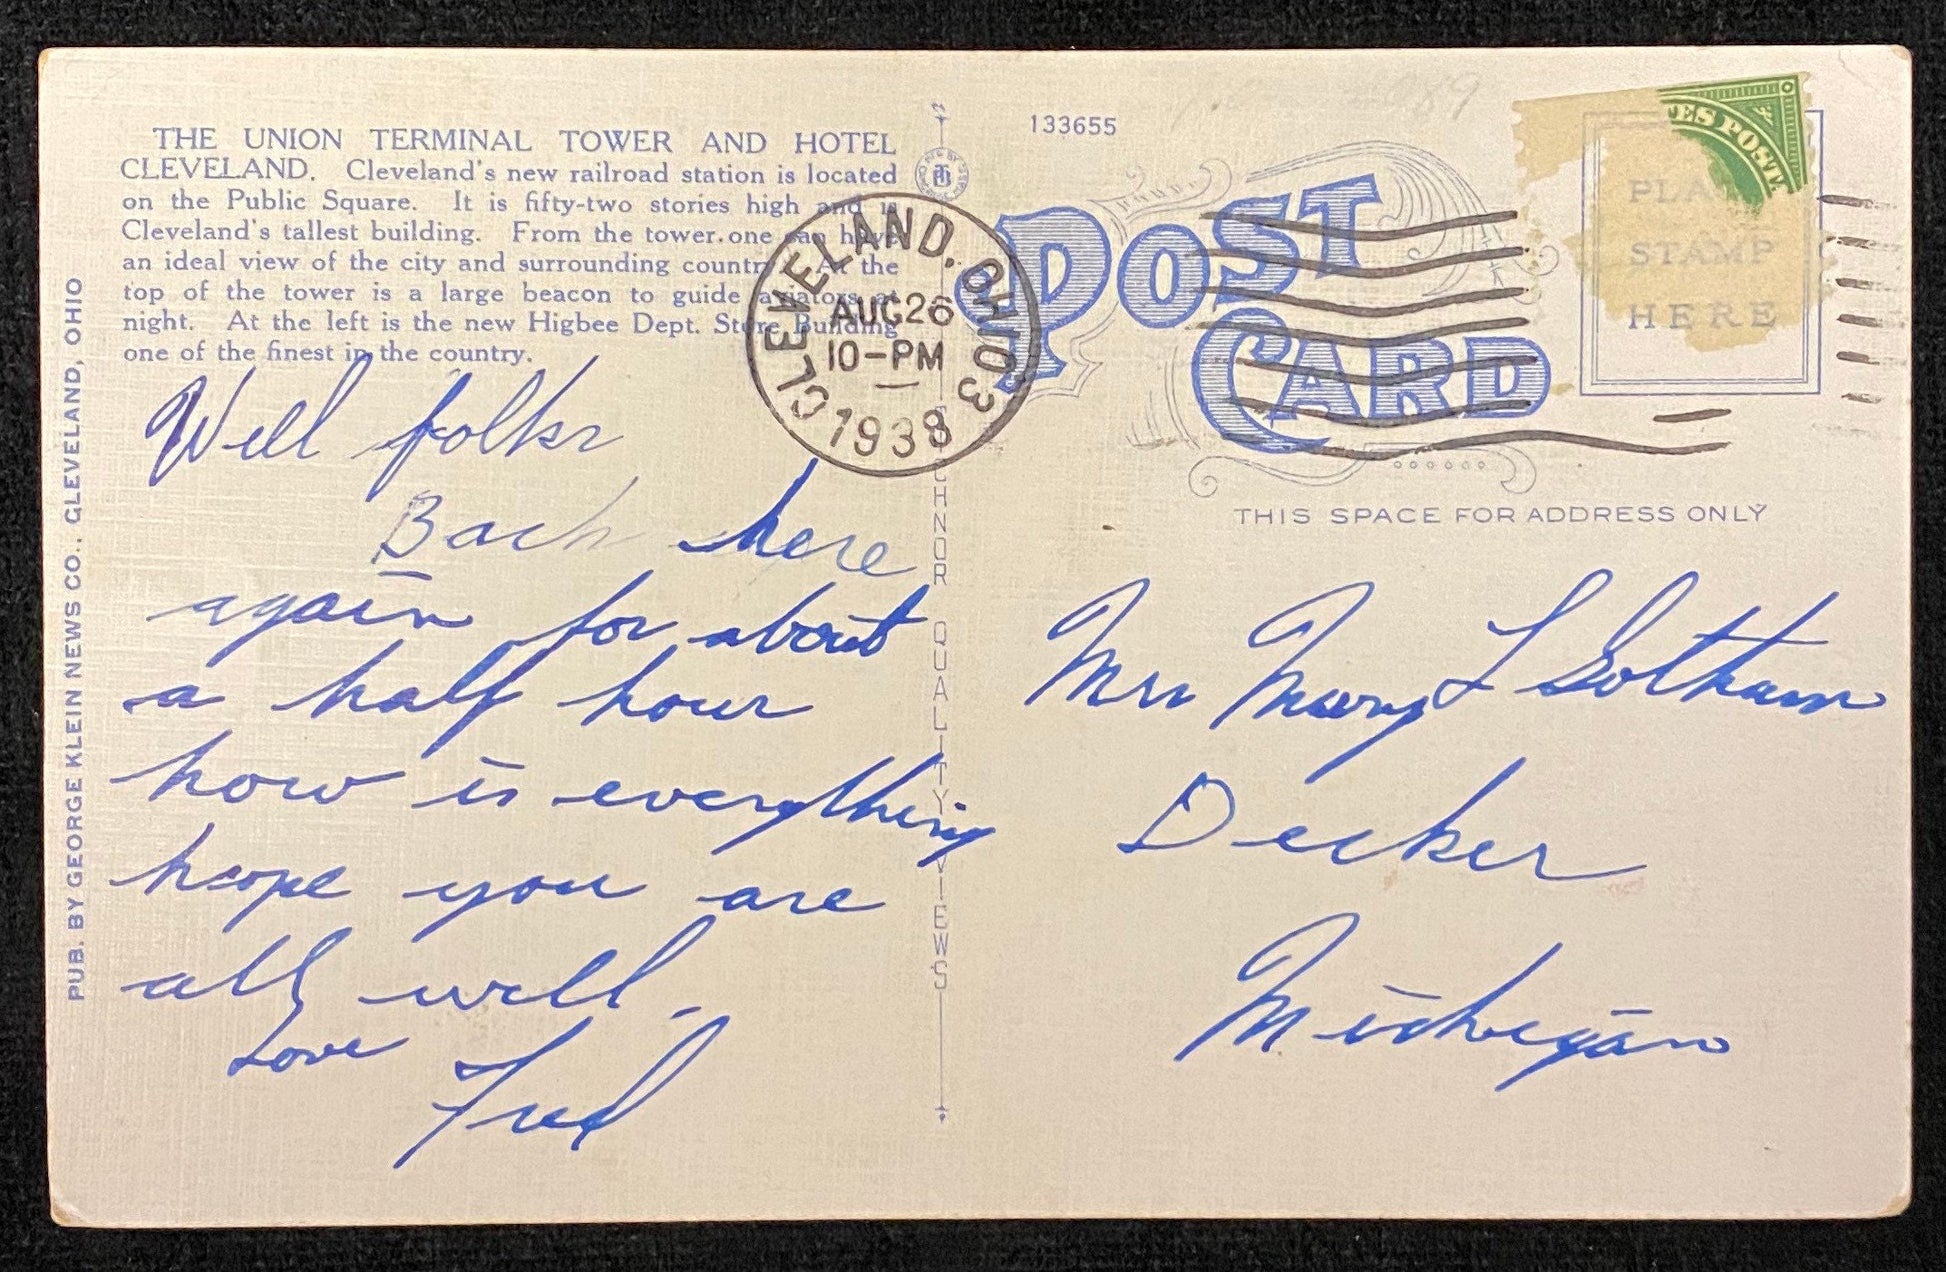 THE UNION TERMINAL TOWER AND HOTEL
CLEVELAND. Cleveland's new railroad station is located
on the Public Square. It is fifty-two stories high and is
Cleveland's tallest building. From the tower one can have
an ideal view of the city and surrounding country. At the
top of the tower is a large beacon to guide aviators at
night. At the left is the new Higbee Dept. Store Building
one of the finest in the country.
Well folks
Back here
again for about
a half hour
how is everything
hope you are
all well.
Love
Fred
PUB. BY GEORGE KLEIN NEWS CO., CLEVELAND, OHIO
CLEVELAND, OHIO 3
AUG 26
10-PM
1938
TECHNOR QUALITY VIEWS
133655
POST
CARD
ES POST
PLACE
STAMP
HERE
THIS SPACE FOR ADDRESS ONLY
Mrs Mary L Gotham
Decker
Michigan